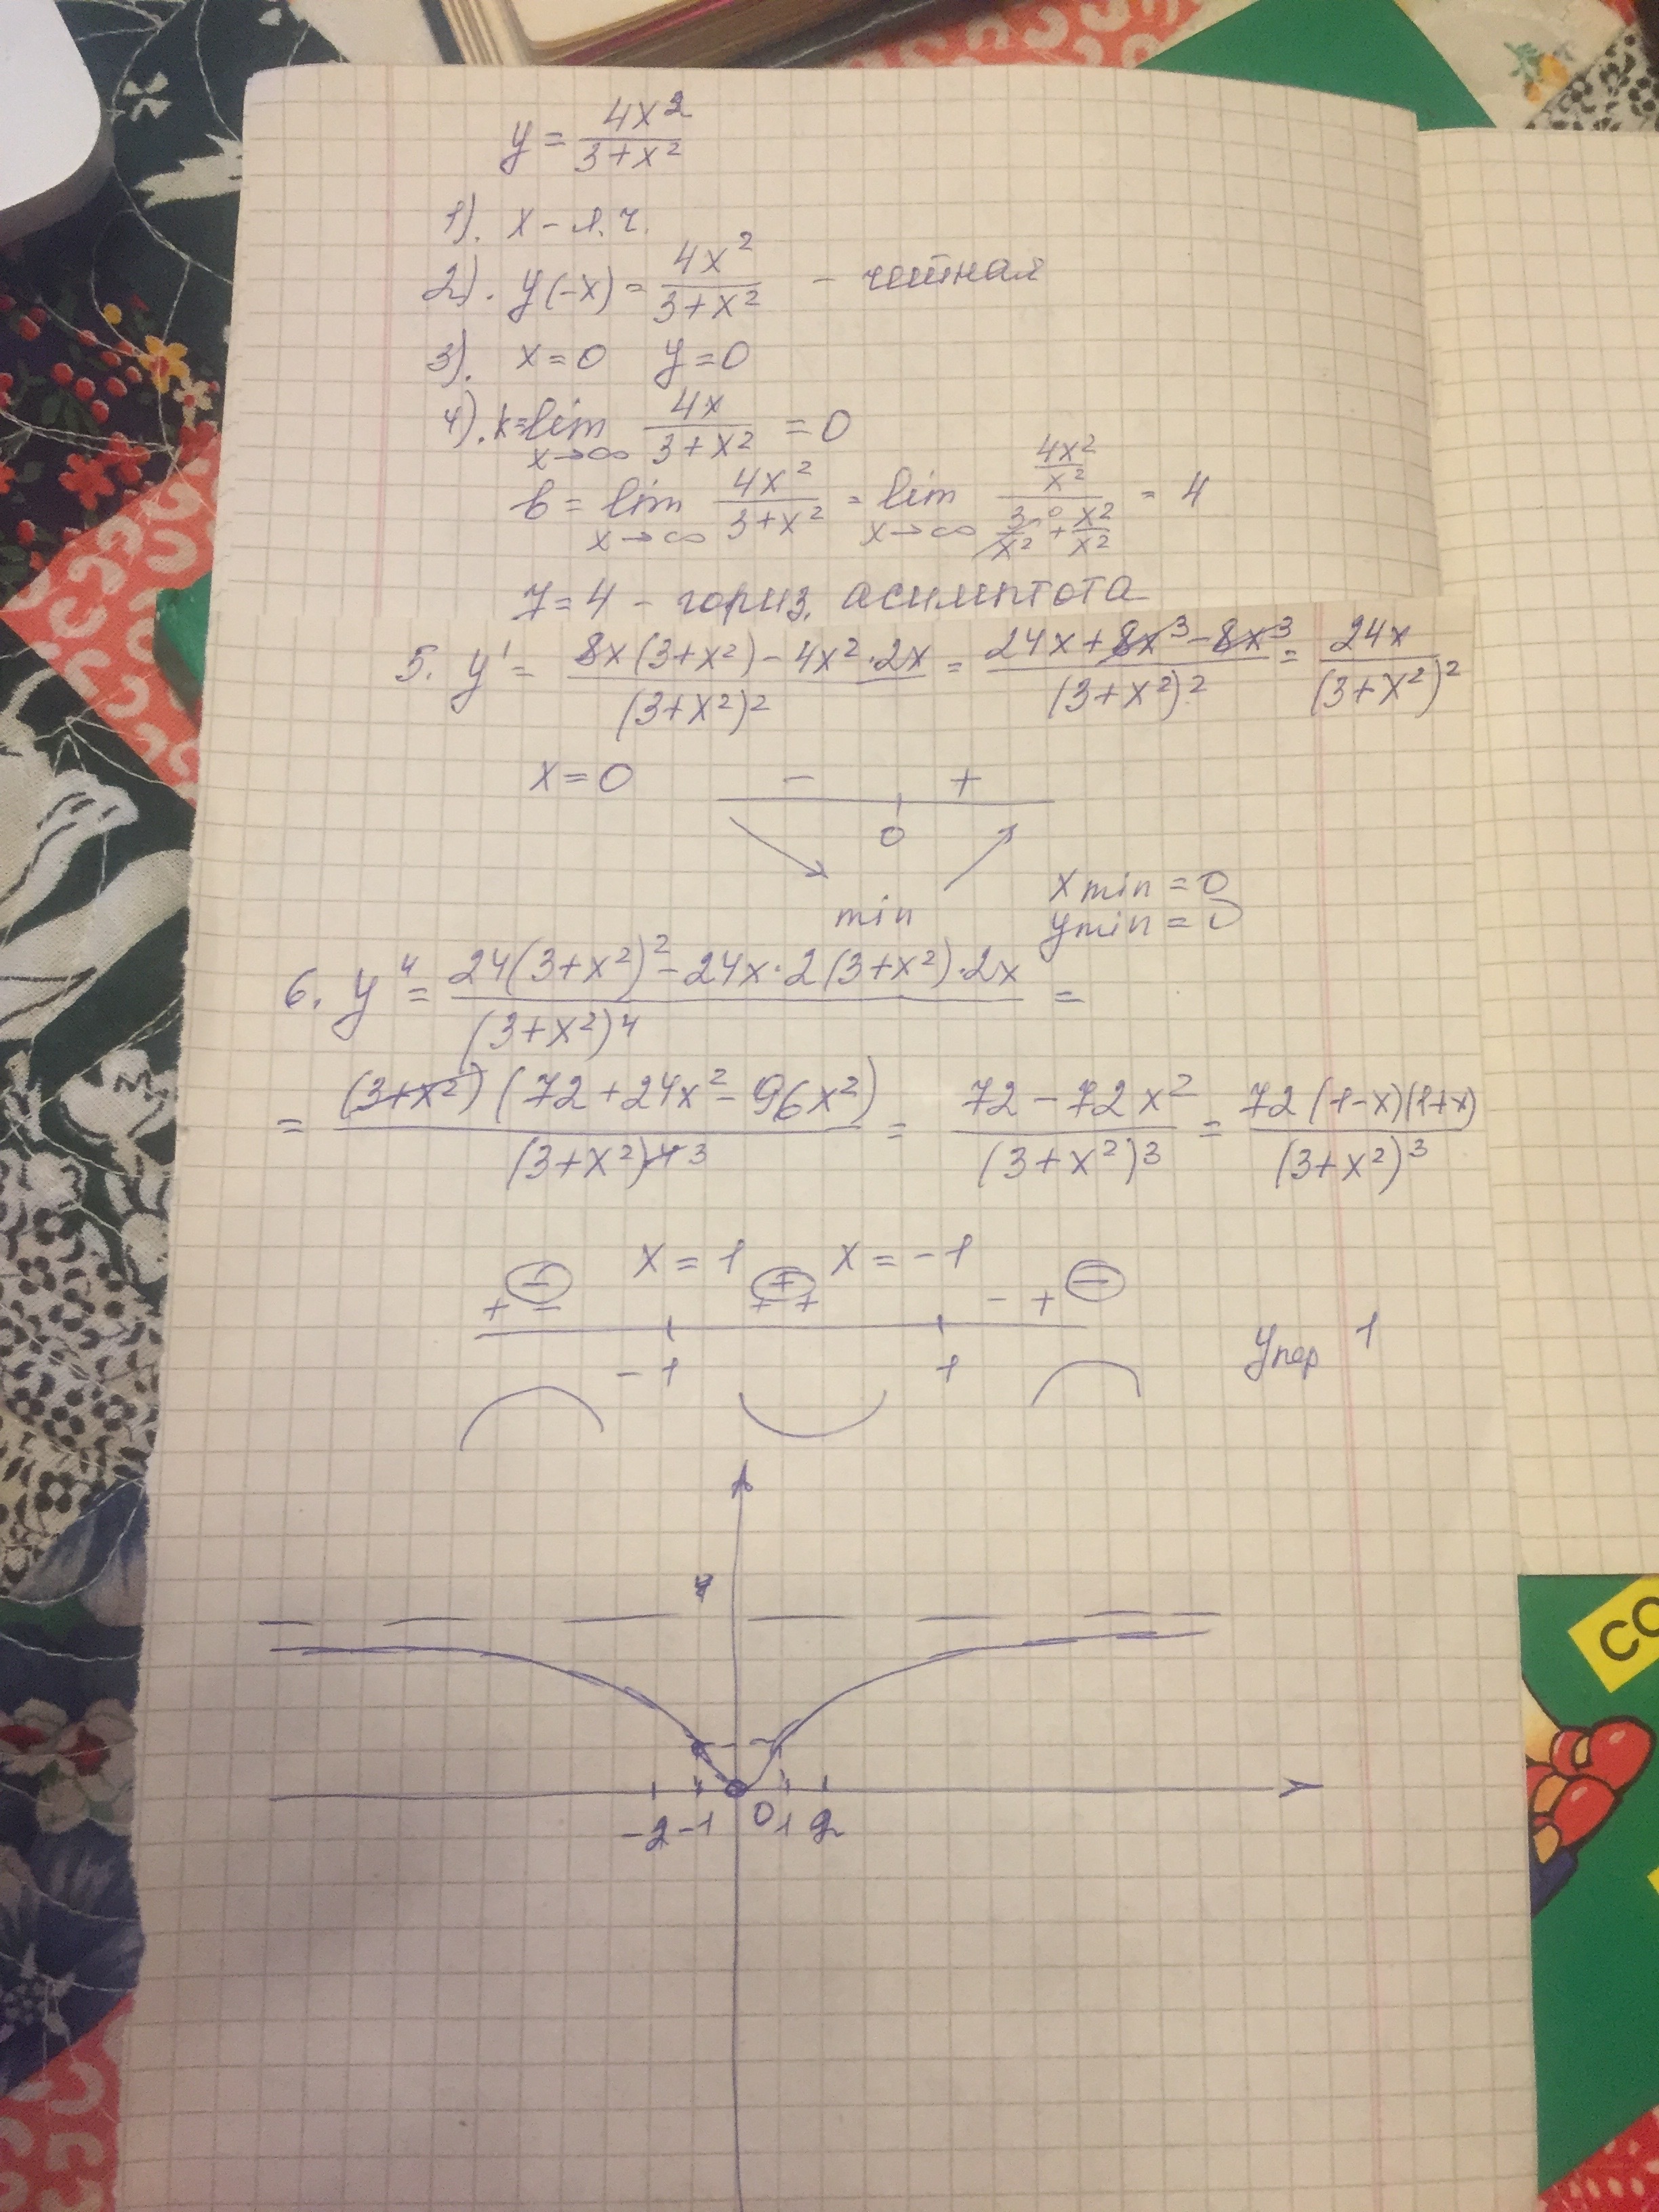 y = 4x² / (3+x²)
1). x – л.ч.
2). y(-x) = 4x² / (3+x²) – четная
3). x=0 y=0
4). k = lim x→∞ 4x / (3+x²) = 0
b = lim x→∞ 4x² / (3+x²) = lim x→∞ (4x²/x²) / (3/x² ⁰ + x²/x²) = 4
y=4 – гориз. асимптота
5. y' = (8x(3+x²) – 4x²·2x) / (3+x²)² = (24x + 8x³ – 8x³) / (3+x²)² = 24x / (3+x²)²
x=0 – +
0
x min = 0
min y min = 0
6. y" = (24(3+x²)² – 24x·2(3+x²)·2x) / (3+x²)⁴ =
= (3+x²)(72+24x² – 96x²) / (3+x²)⁴ ³ = (72 – 72x²) / (3+x²)³ = 72(1–x)(1+x) / (3+x²)³
x = 1 x = –1
– + –
+ – + + – +
–1 1 yпер 1
4
-2 -1 0 1 2
СО